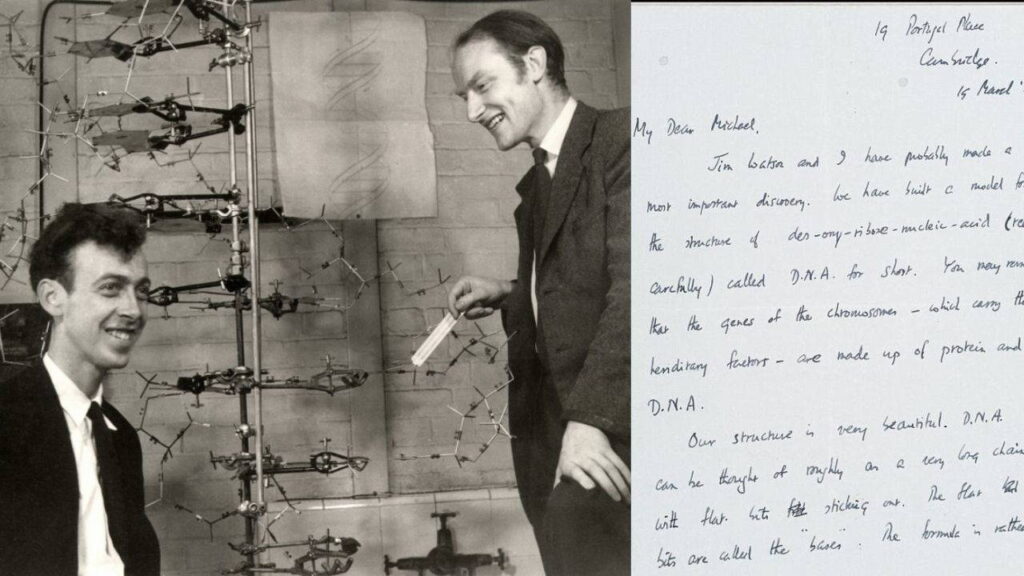 19 Portugal Place
Cambridge.
15 March '
My Dear Michael,
Jim Watson and I have probably made a
most important discovery. We have built a model for
the structure of des-oxy-ribose-nucleic-acid (read
carefully) called D.N.A. for short. You may
that the genes of the chromosomes – which carry the
hereditary factors – are made up of protein and
D.N.A.
Our structure is very beautiful. D.N.A.
can be thought of roughly as a very long chain
with flat bits sticking out. The flat
bits are called the "bases". The formula is rather